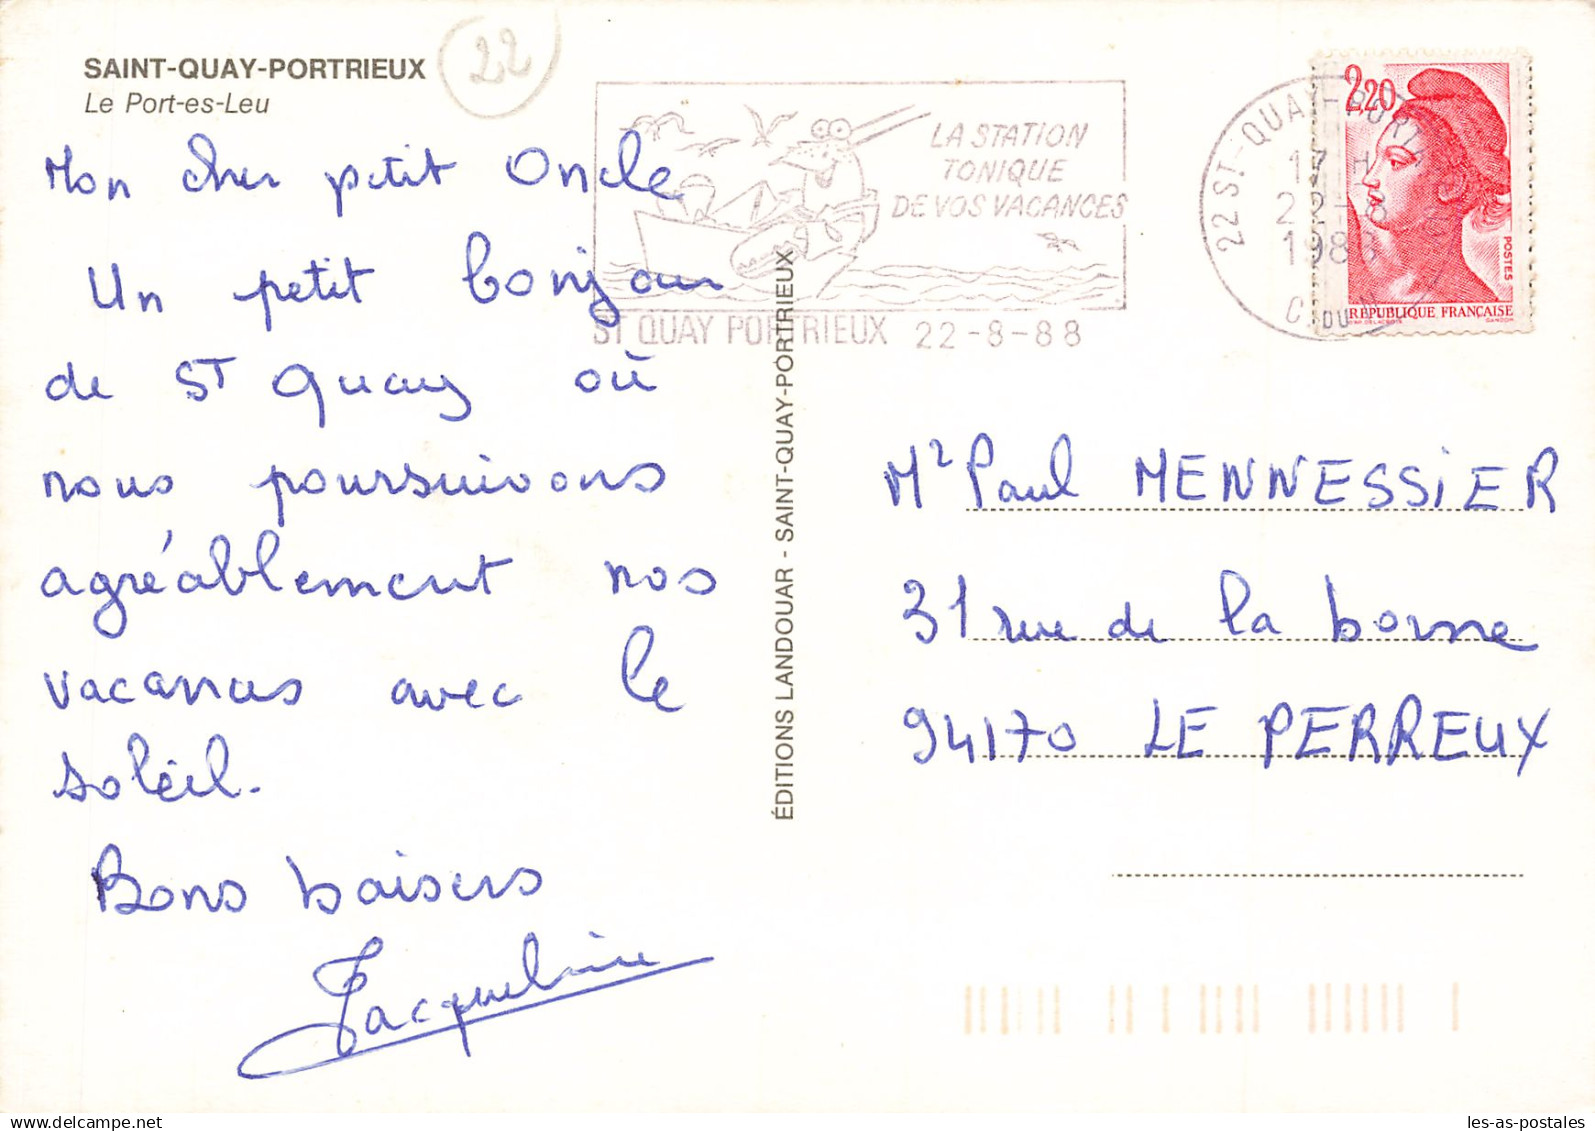 SAINT-QUAY-PORTRIEUX
Le Port-es-Leu
22
Mon cher petit Oncle
Un petit bonjour
de ST Quay où
nous poursuivons
agréablement nos
vacances avec le
soleil.
Bons baisers
Jacqueline
LA STATION
TONIQUE
DE VOS VACANCES
ST QUAY PORTRIEUX 22-8-88
22 ST-QUAY-PORTRIEUX
17 H
22-8
1988
C. DU N
2,20
POSTES
RÉPUBLIQUE FRANÇAISE
ÉDITIONS LANDOUAR - SAINT-QUAY-PORTRIEUX
Mr Paul MENNESSIER
31 rue de la borne
94170 LE PERREUX
les-as-postales